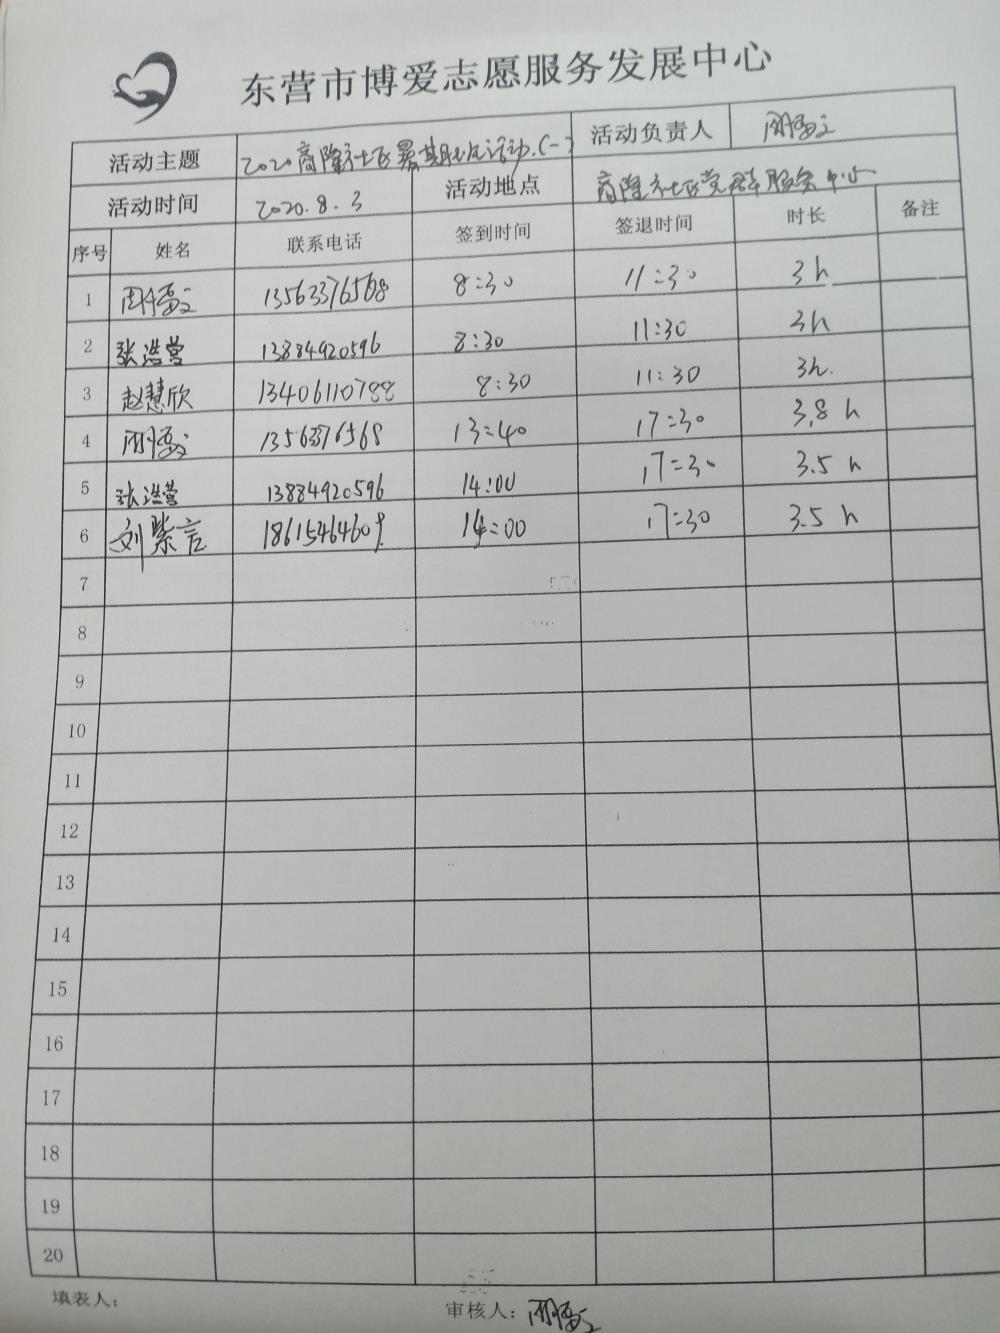 东营市博爱志愿服务发展中心
活动主题 2020商隆社区暑期 活动(一) 活动负责人
活动时间 2020.8.3 活动地点 商隆社区党群服务中心
序号 姓名 联系电话 签到时间 签退时间 时长 备注
1 13563376568 8:30 11:30 3h
2 张浩营 13884920596 8:30 11:30 3h
3 赵慧欣 13406110788 8:30 11:30 3h.
4 13563376568 13:40 17:30 3.8h
5 张浩营 13884920596 14:00 17:30 3.5h
6 刘紫言 18615464609 14:00 17:30 3.5h
7
8
9
10
11
12
13
14
15
16
17
18
19
20
填表人: 审核人: